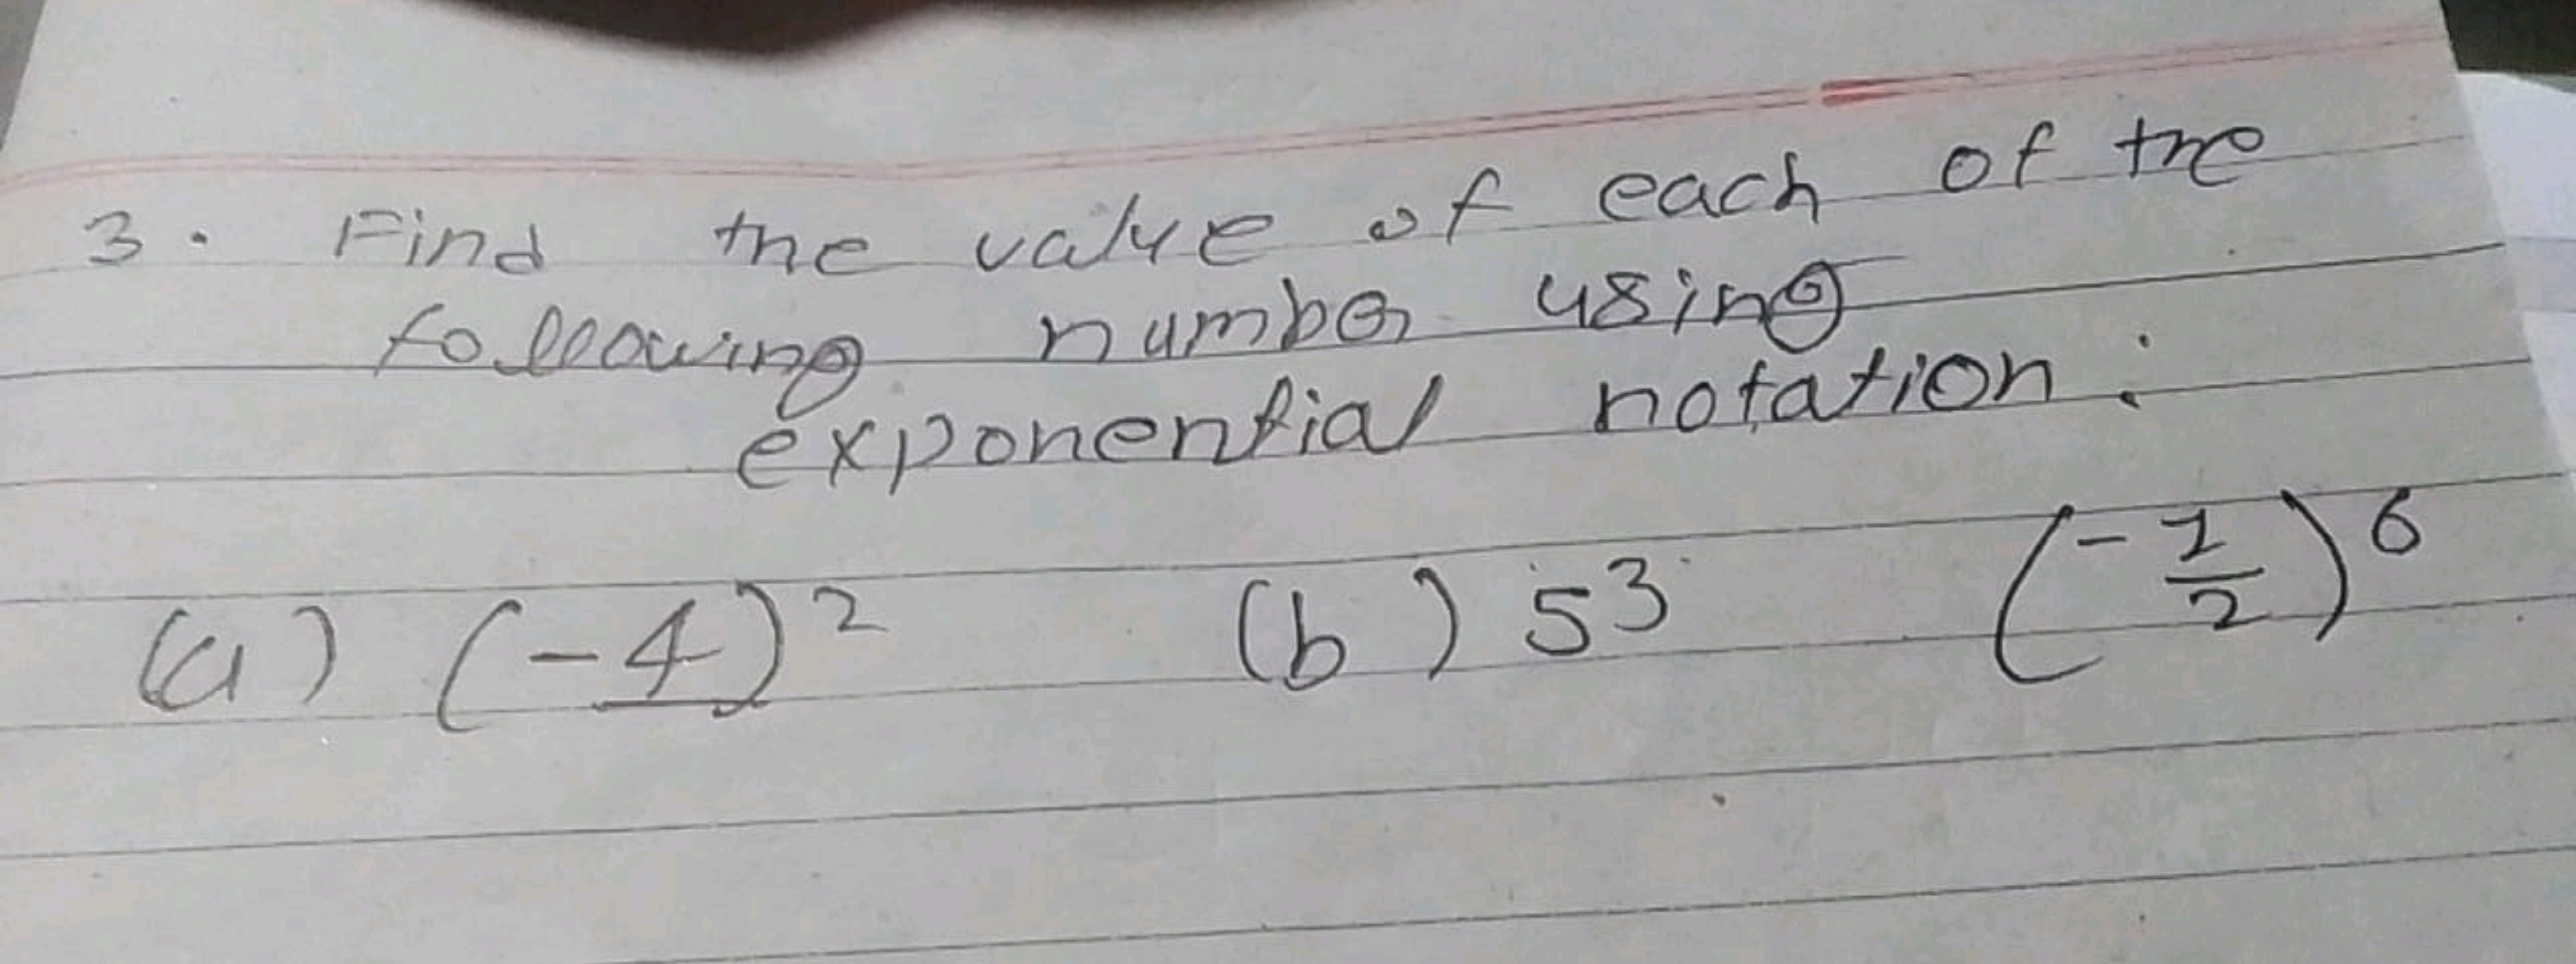 3. Find the value of each of the
following number using
exponential notation:
(a) (-4)² (b) 5³ (-1/2)⁶